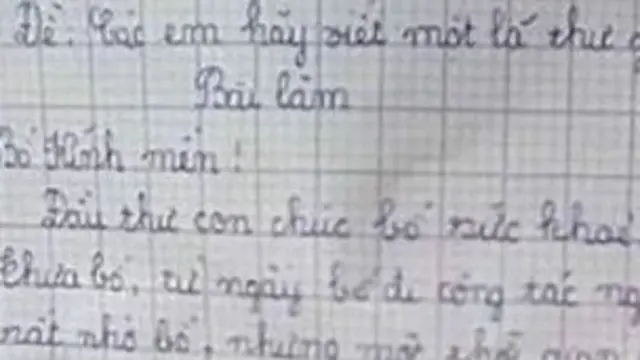 Đề: Các em hãy viết một lá thư
Bài làm
Bố kính mến!
Đầu thư con chúc bố sức khoẻ
thưa bố, từ ngày bố đi công tác
rất nhớ bố, nhưng mà